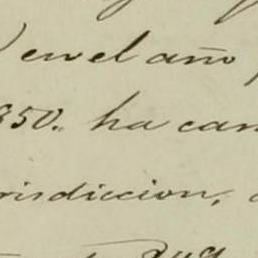 ) en el año
850. ha can
risdiccion,